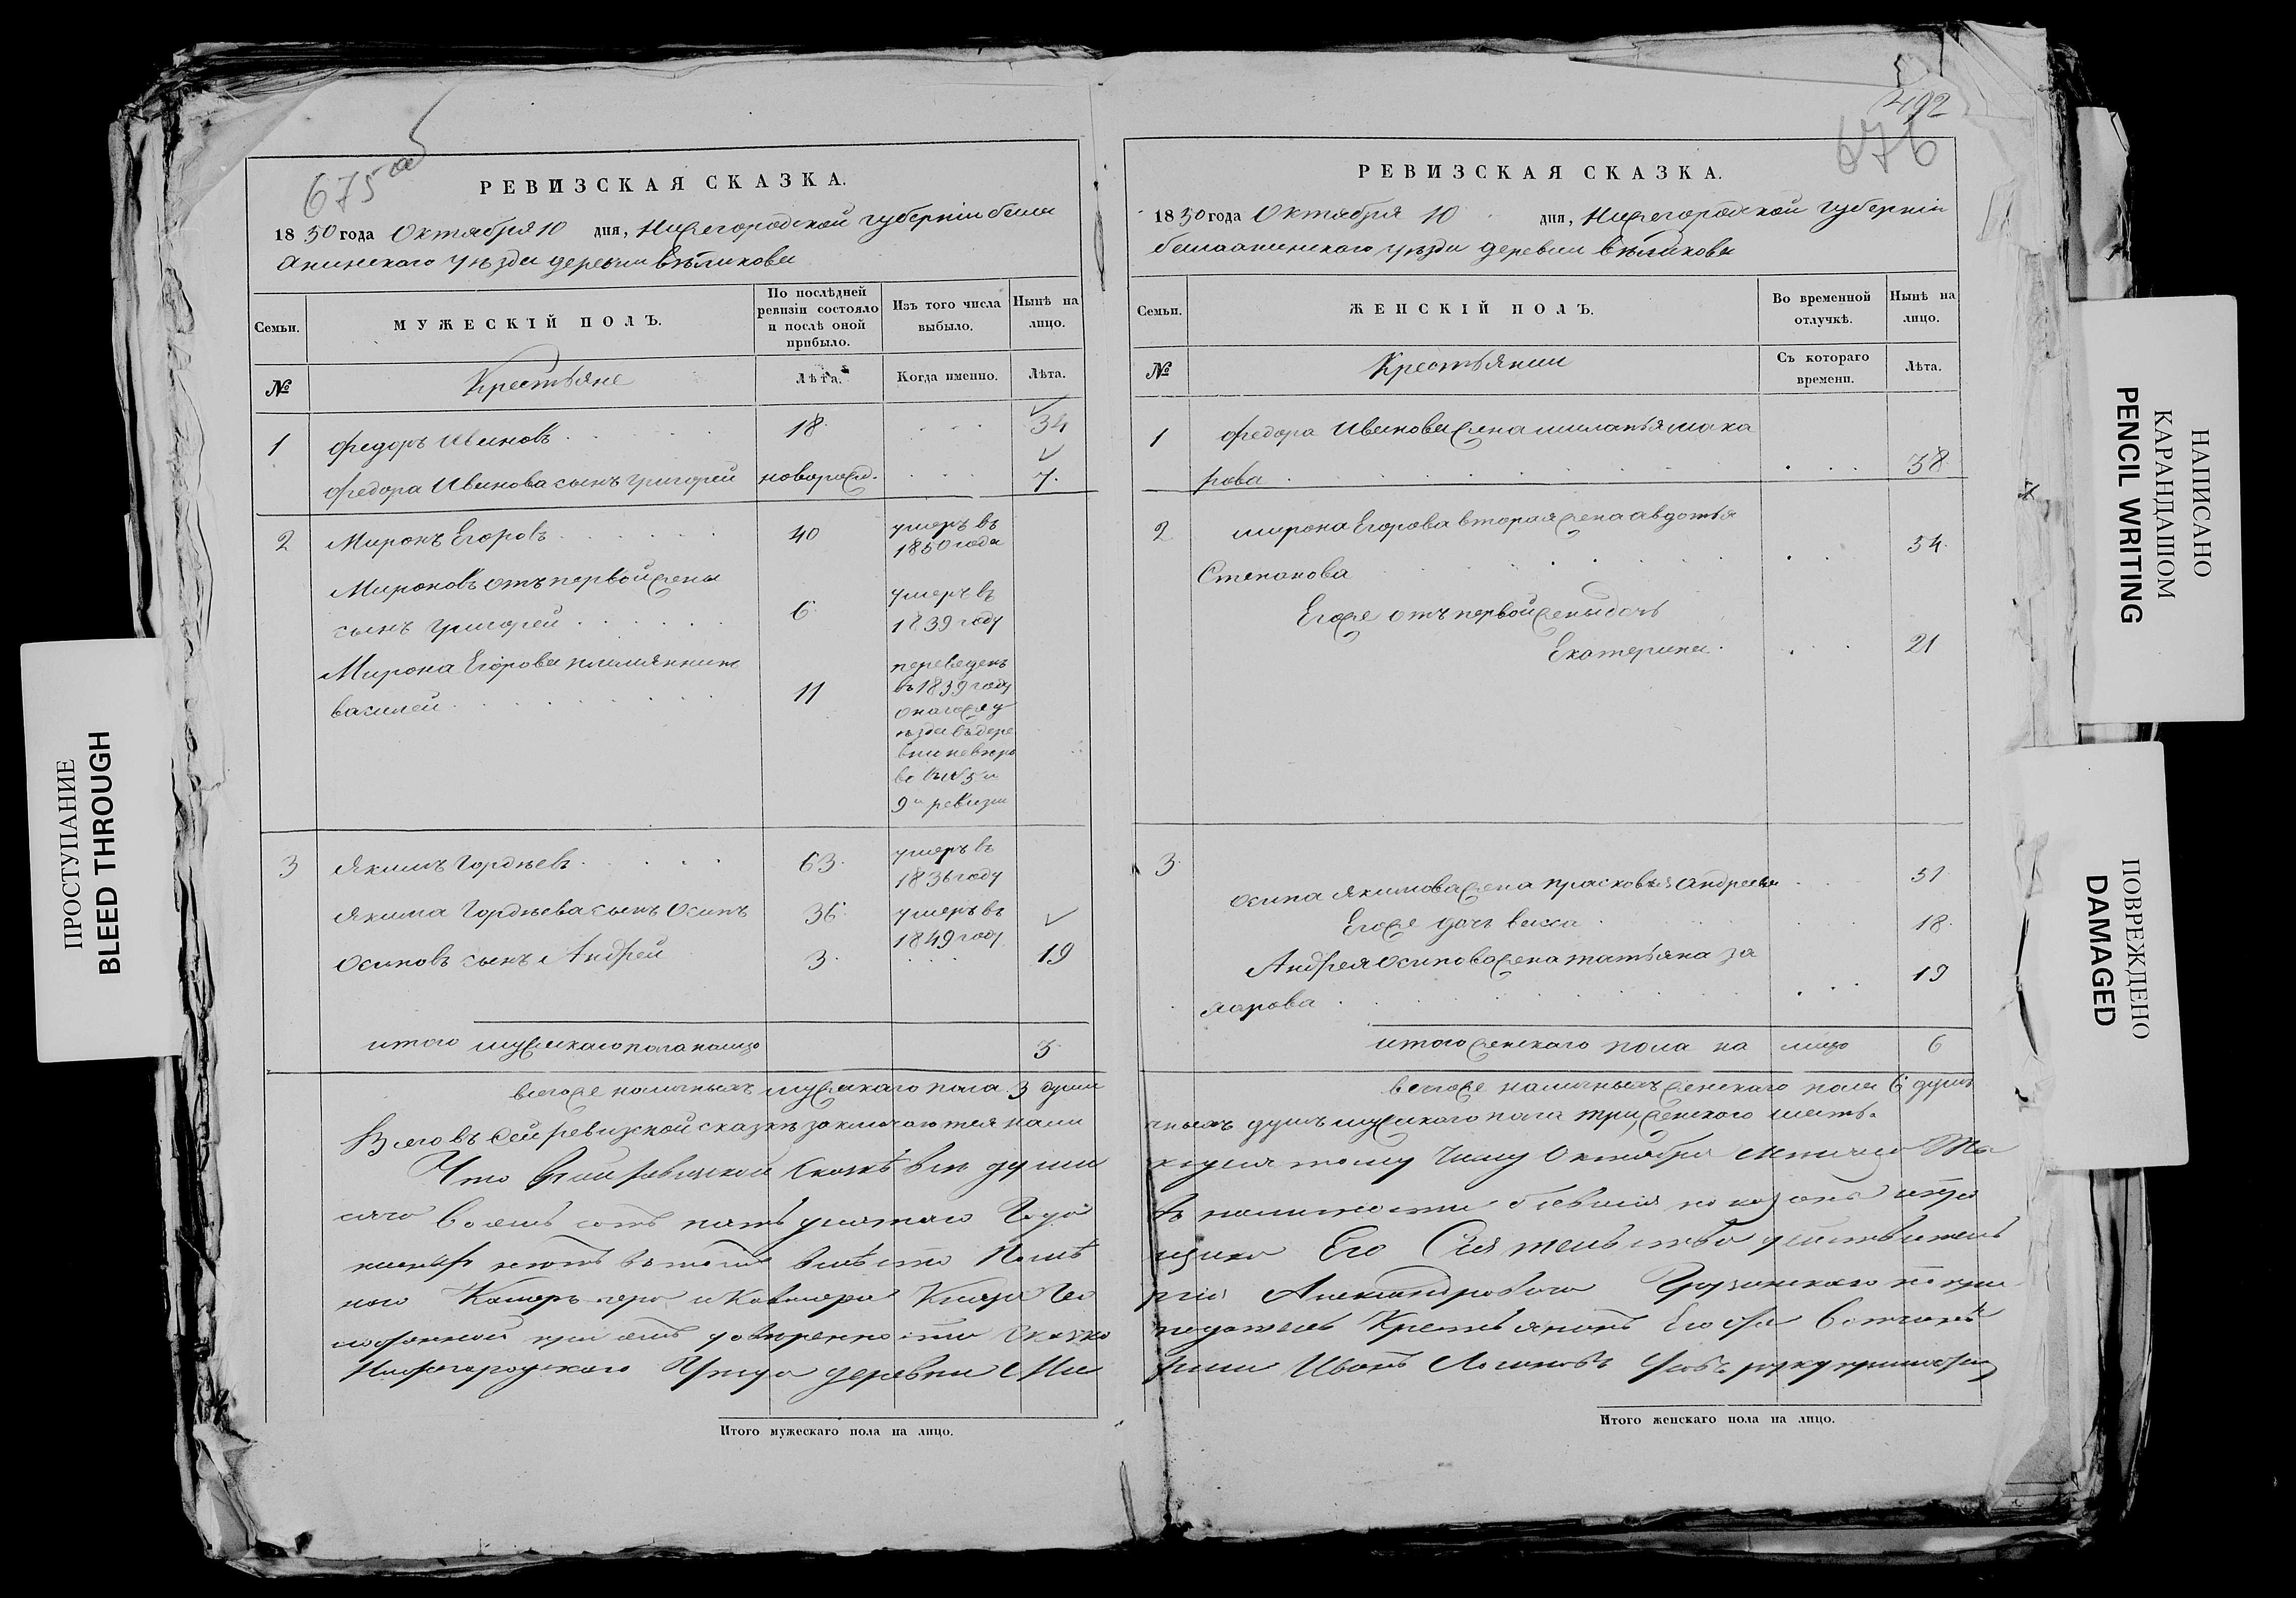 675 об
РЕВИЗСКАЯ СКАЗКА.
1850 года Октября 10 дня, Нижегородской губернии бала
хнинского уѣзда деревни вѣликова
Семьи.
МУЖЕСКІЙ ПОЛЪ.
По послѣдней ревизіи состояло и послѣ оной прибыло.
Изъ того числа выбыло.
Нынѣ на лицо.
№
Крестьяне
Лѣта.
Когда именно.
Лѣта.
1 Федоръ Ивановъ 18 34
Федора Иванова сынъ Григорей новорожд. 7.
2 Миронъ Егоровъ 40 умеръ въ
1850 года
Мироновъ отъ первой жены
сынъ Григорей 6 умеръ въ
1839 году
Мирона Егорова племянникъ
василей 11 переведенъ
въ 1839 году
оного же у
ѣзда въ дере
9й ревизи
3 Якимъ Гордѣевъ 63. умеръ въ
1836 году
Якима Гордѣева сынъ Осипъ 36 умеръ въ
1849 году
Осиповъ сынъ Андрей 3. 19
итого мужскаго пола налицо 3
всегоже наличныхъ мужскаго пола 3 души
Всего въ сей ревизской сказкѣ заключается нали
Что въ сей ревизской сказкѣ всѣ души
сяча восемь сотъ пять десятаго Года
Помѣ
наго Камергера и Кавалера Князя Гео
доверенности сказку
Нижегородскаго Уѣзда деревни
Итого мужескаго пола на лицо.
492
676
РЕВИЗСКАЯ СКАЗКА.
1850 года Октября 10 дня, Нижегородской губерніи
балахнинского уѣзда деревни вѣликова
Семьи.
ЖЕНСКІЙ ПОЛЪ.
Во временной отлучкѣ.
Нынѣ на лицо.
№
Крестьянки
Съ котораго времени.
Лѣта.
1 Федора Иванова жена миланья мака
рова 38.
2 мирона Егорова вторая жена авдотья
Степанова 34.
Егоже отъ первой жены дочь
Екатерина. 21
3. осипа Якимова жена прасковья андреева 51
Егоже дочь васса 18.
Андрея осипова жена татьяна за
харова 19
итого женскаго пола на лицо 6
всегоже наличныхъ женскаго пола 6 душъ
чныхъ душъ мужскаго пола три, женского шесть.
тому числу Октября Мѣсяца
щика Его Сиятельства действитель
ргія Александровича Грузинскаго
Крестьянинъ Егоже Вотчины
Иванъ Логиновъ руку приложилъ
Итого женскаго пола на лицо.
ПРОСТУПАНИЕ
BLEED THROUGH
НАПИСАНО
КАРАНДАШОМ
PENCIL WRITING
ПОВРЕЖДЕНО
DAMAGED